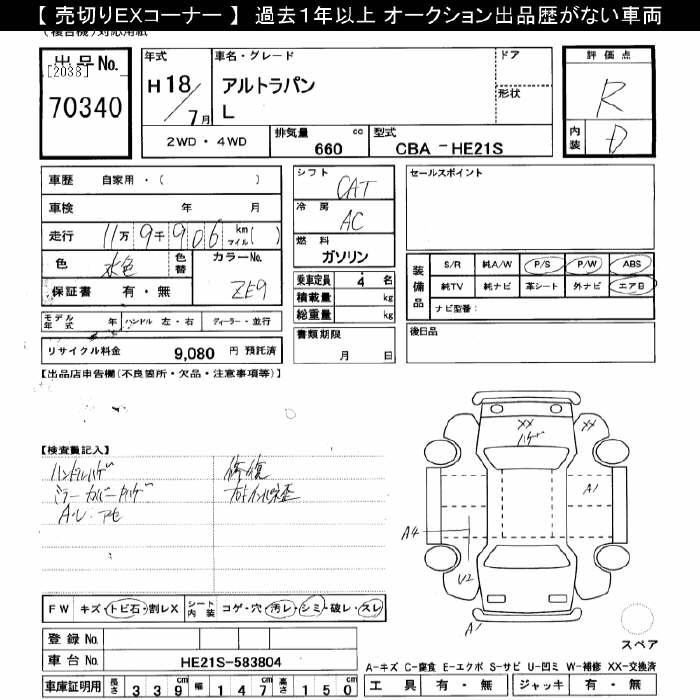 【 売切りEXコーナー 】 過去１年以上 オークション出品歴がない車両
出品No.
[2038]
70340
年式
H 18/7月
車名・グレード
アルトラパン
L
ドア
形状
2WD ・ 4WD
排気量 cc
660
型式
CBA －HE21S
評価点
R
内装
D
車歴 自家用・( )
車検 年 月
走行 11万 9千 906 km マイル( )
色 水色
色替
カラーNo.
ZE9
保証書 有・無
シフト
CAT
冷房
AC
燃料
ガソリン
乗車定員 4 名
積載量 kg
総重量 kg
書類期限
月 日
セールスポイント
装備品
S/R 純A/W P/S P/W ABS
純TV 純ナビ 革シート 外ナビ エアB
ナビ型番:
後日品
モデル年式 年 ハンドル 左・右 ディーラー・並行
リサイクル料金 9,080 円 預託済
【出品店申告欄(不良箇所・欠品・注意事項等)】
【検査員記入】
ハンドルハゲ
ミラーカバーハゲ
修復
XX
ハゲ
XX
A1
A4
U2
A1
スペア
FW キズ・トビ石・割レX
シート内装 コゲ・穴・汚レ・シミ・破レ・スレ
登録No.
車台No. HE21S-583804
車庫証明用 長さ 339cm 幅 147cm 高さ 150cm
A-キズ C-腐食 E-エクボ S-サビ U-凹ミ W-補修 XX-交換済
工具 有・無 ジャッキ 有・無